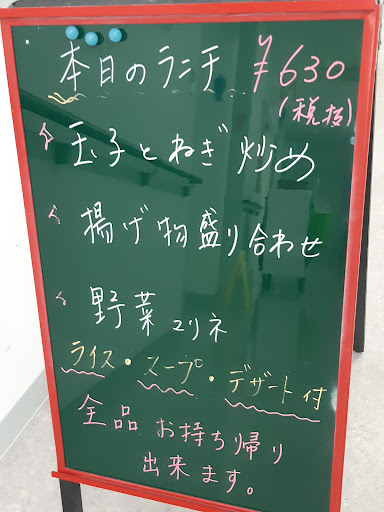 本日のランチ ¥630
(税抜)
玉子とねぎ炒め
揚げ物盛り合わせ
野菜マリネ
ライス・スープ・デザート付
全品お持ち帰り
出来ます。